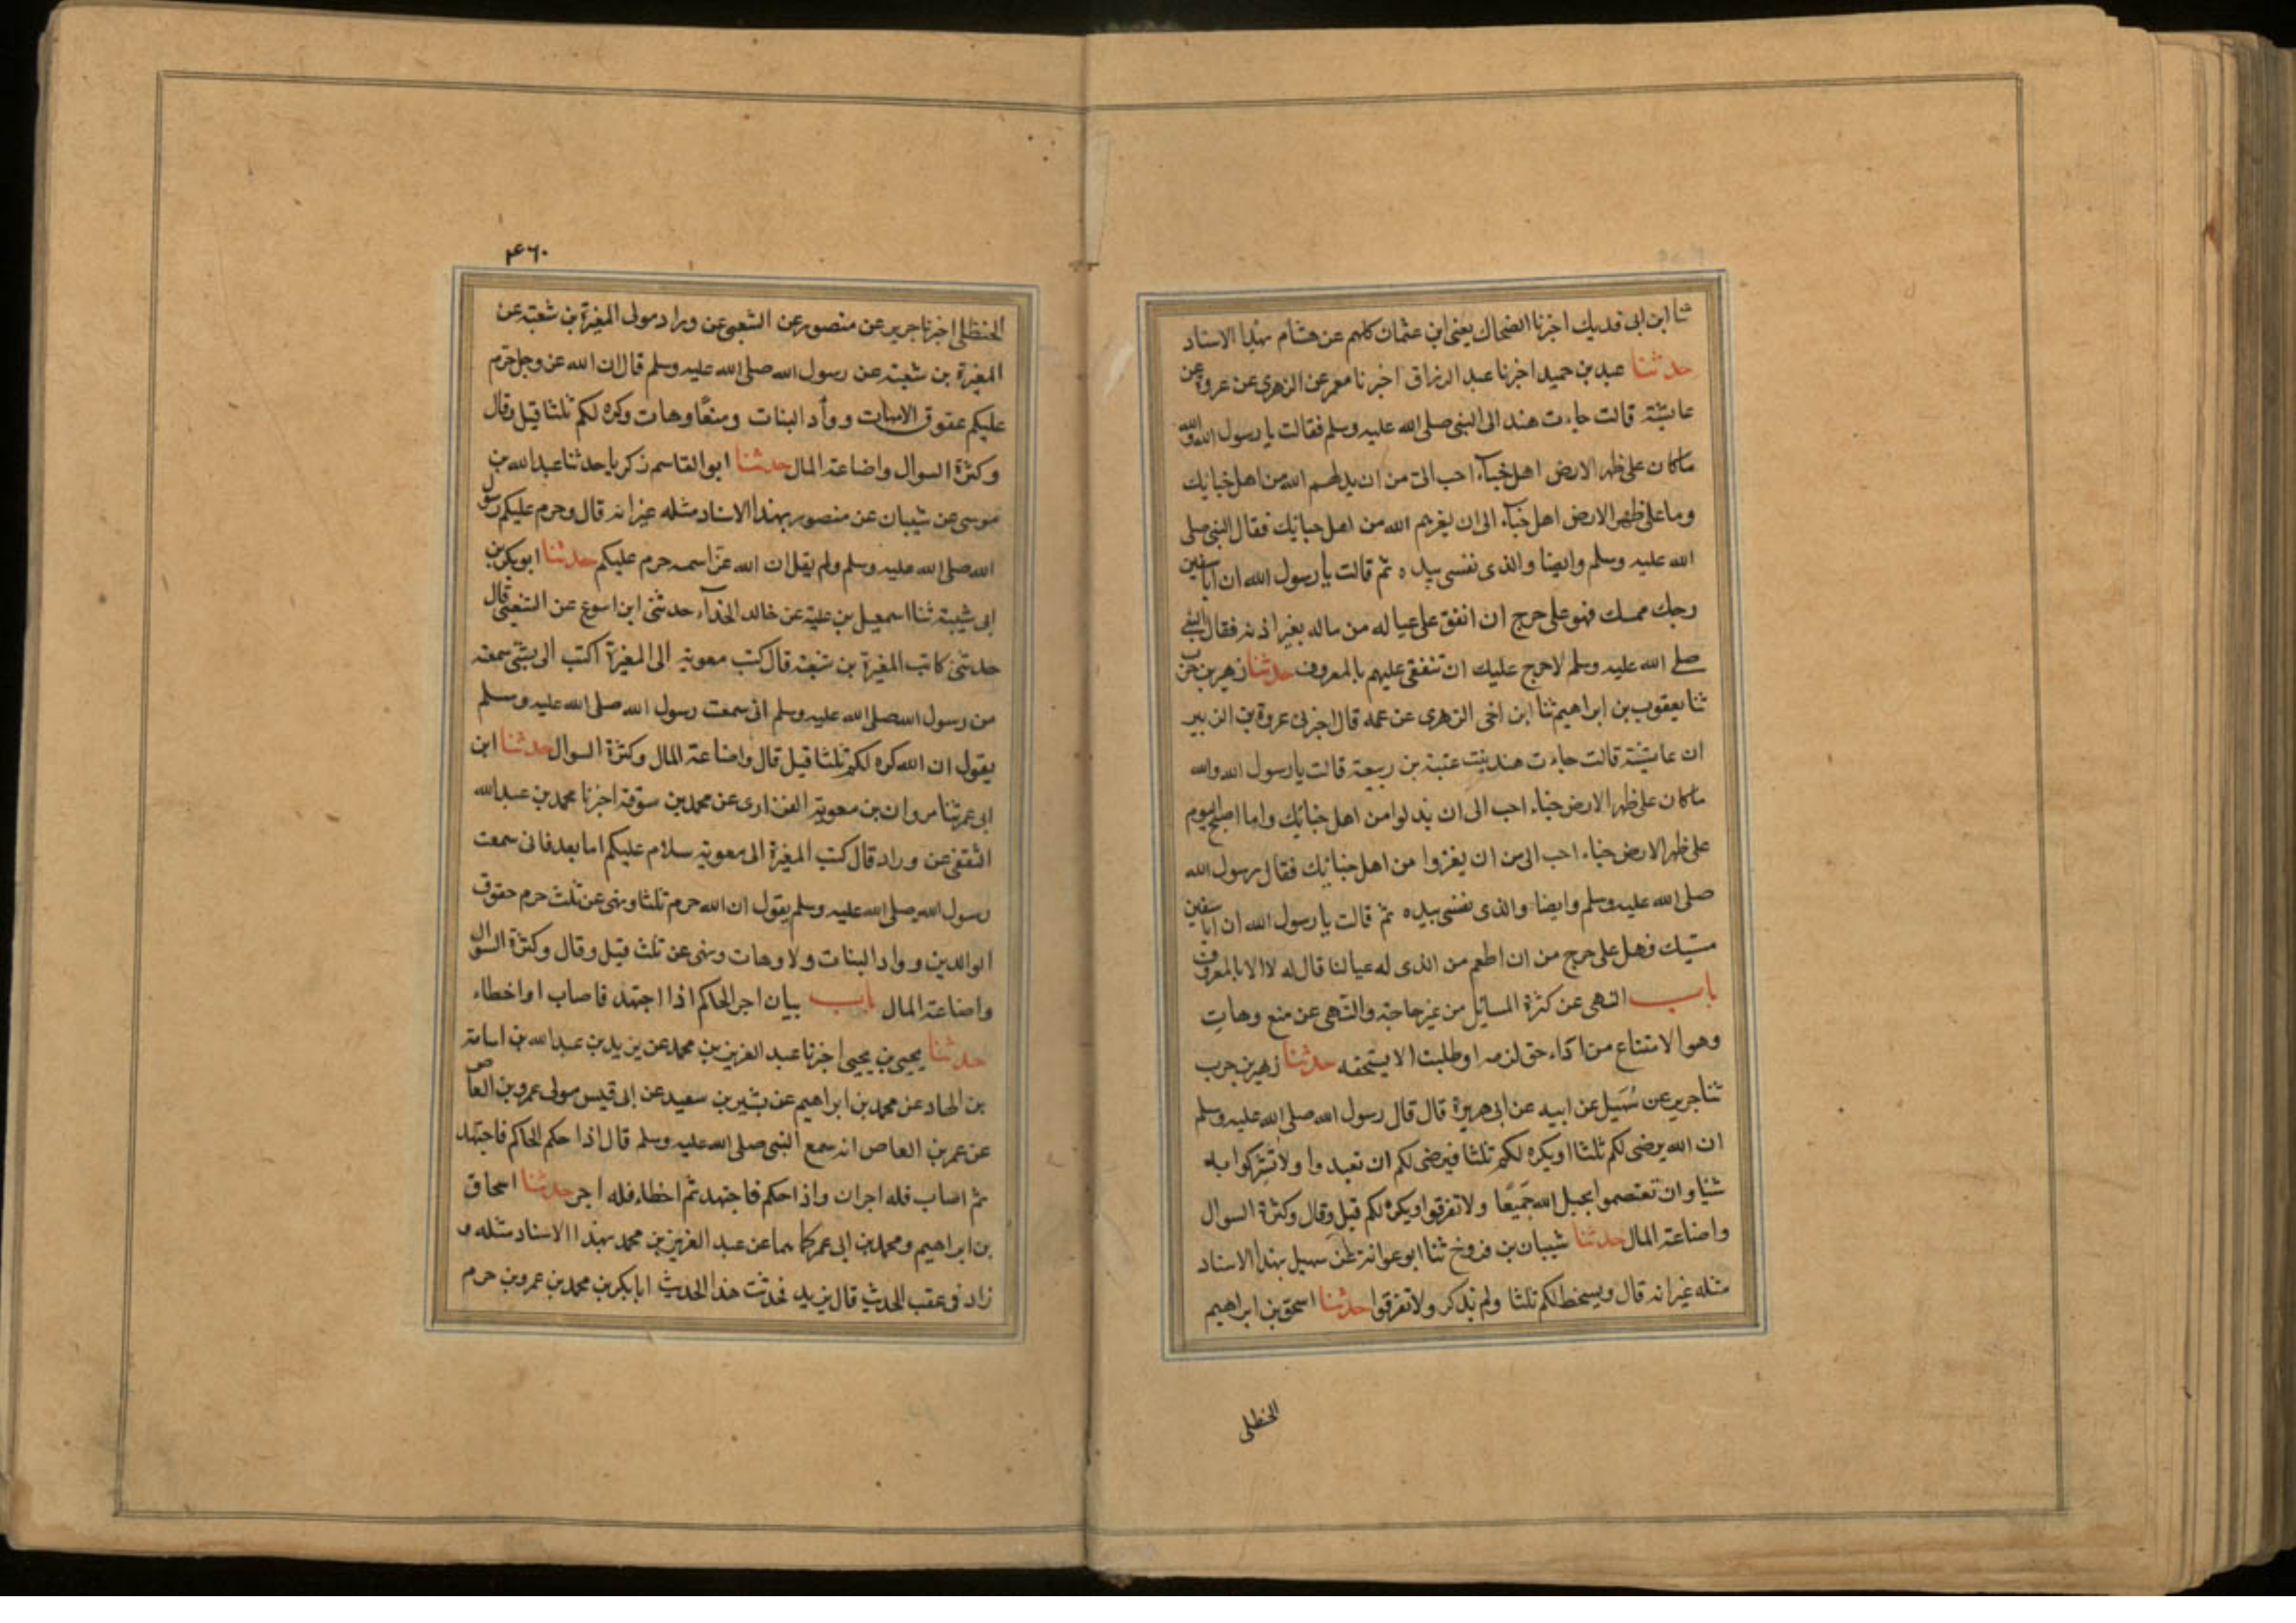 ثنا ابن ابى فديك اخبرنا الضحاك يعنى ابن عثمان كلهم عن هشام بهذا الاسناد
حدثنا عبد بن حميد اخبرنا عبد الرزاق اخبرنا معمر عن الزهرى عن عروة عن
عايشة قالت جاءت هند الى النبى صلى الله عليه وسلم فقالت يا رسول الله والله
ماكان على ظهر الارض اهل خباء احب الى من ان يذلهم الله من اهل خبائك
وما على ظهر الارض اهل خباء الى ان يغرهم الله من اهل خبائك فقال النبى صلى
الله عليه وسلم وايضا والذى نفسى بيده ثم قالت يا رسول الله ان ابا سفين
رجل ممسك فهو على حرج ان انفق على عياله من ماله بغير اذنه فقال النبى
صلى الله عليه وسلم لا حرج عليك ان تنفقى عليهم بالمعروف حدثنا زهير بن حرب
ثنا يعقوب بن ابراهيم ثنا ابن اخى الزهرى عن عمه قال اخبرنى عروة بن الزبير
ان عايشة قالت جاءت هند بنت عتبة بن ربيعة قالت يا رسول الله والله
ماكان على ظهر الارض خباء احب الى ان يذلوا من اهل خبائك واما اصبح اليوم
على ظهر الارض خباء احب الى من ان يغزوا من اهل خبائك فقال رسول الله
صلى الله عليه وسلم وايضا والذى نفسى بيده ثم قالت يا رسول الله ان ابا سفين
مسيك فهل على حرج من ان اطعم من الذى له عيالنا قال له لا الا بالمعروف
باب النهى عن كثرة المسايل من غير حاجة والنهى عن منع وهات
وهو الامتناع من اداء حق لزمه او طلبت الا يستحقه حدثنا زهير بن حرب
ثنا جرير عن سُهَيل عن ابيه عن ابى هريرة قال قال رسول الله صلى الله عليه وسلم
ان الله يرضى لكم ثلثا او يكره لكم ثلثا فيرضى لكم ان تعبدوا ولا تشركوا به
شيا وان تعتصموا بحبل الله جَميعًا ولا تفرقوا ويكره لكم قيل وقال وكثرة السوال
واضاعة المال حدثنا شيبان بن فروخ ثنا ابو عوانة عن سهيل بهذا الاسناد
مثله غير انه قال ويسخط لكم ثلثا ولم يذكر ولا تفرقوا حدثنا اسحق بن ابراهيم
الحنظلى
٤٦٠
الحنظلى اخبرنا جرير عن منصور عن الشعبى عن وراد مولى المغيرة بن شعبة عن
المغيرة بن شعبة عن رسول الله صلى الله عليه وسلم قال ان الله عز وجل حرم
عليكم عقوق الامهات ووأد البنات ومنعًا وهات وكره لكم ثلثا قيل وقال
وكثرة السوال واضاعة المال حدثنا ابو القاسم زكريا حدثنا عبد الله بن
موسى عن شيبان عن منصور بهذا الاسناد مثله غير انه قال وحرم عليكم رسول
الله صلى الله عليه وسلم ولم يقل ان الله عز اسمه حرم عليكم حدثنا ابو بكر بن
ابى شيبة ثنا اسمعيل بن علية عن خالد الحذآء حدثنى ابن اسوع عن الشعبى قال
حدثنى كاتب المغيرة بن شعبة قال كتب معوية الى المغيرة اكتب الى بشئ سمعته
من رسول الله صلى الله عليه وسلم انى سمعت رسول الله صلى الله عليه وسلم
يقول ان الله كره لكم ثلثا قيل قال واضاعة المال وكثرة السوال حدثنا ابن
ابى عمر ثنا مروان بن معوية الفزارى عن محمد بن سوقة اخبرنا محمد بن عبد الله
الثقفى عن وراد قال كتب المغيرة الى معوية سلام عليكم اما بعد فانى سمعت
رسول الله صلى الله عليه وسلم يقول ان الله حرم ثلثا ونهى عن ثلث حرم حقوق
الوالدين وواد البنات ولا وهات ونهى عن ثلث قيل وقال وكثرة السوال
واضاعة المال باب بيان اجر الحاكم اذا اجتهد فاصاب او اخطاء
حدثنا يحيى بن يحيى اخبرنا عبد العزيز بن محمد عن يزيد بن عبد الله بن اسامة
بن الهاد عن محمد بن ابراهيم عن بشير بن سعيد عن ابى قيس مولى عمرو بن العاص
عن عمر بن العاص انه سمع النبى صلى الله عليه وسلم قال اذا حكم الحاكم فاجتهد
ثم اصاب فله اجران واذا حكم فاجتهد ثم اخطاء فله اجر حدثنا اسحاق
بن ابراهيم ومحمد بن ابى عمر كلاهما عن عبد العزيز بن محمد بهذا الاسناد مثله و
زاد فى عقب الحديث قال يزيد فحدثت هذا الحديث ابا بكر بن محمد بن عمرو بن حزم